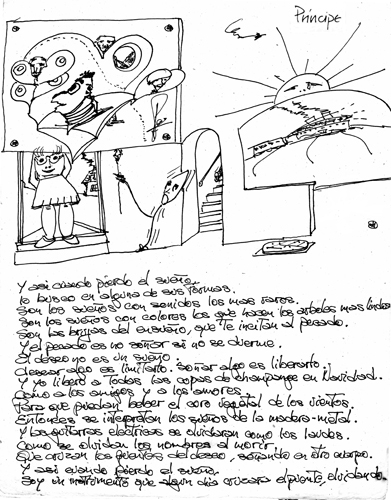 Príncipe
Y asi cuando pierdo el sueño
lo busco en alguna de sus formas.
Son los sueños con sonidos los mas raros.
Son los sueños con colores los que hacen los arboles mas lindos
Son las brujas del ensueño, que te incitan al pecado.
Y el pecado es no soñar si no se duerme.
El deseo no es un sueño.
desear algo es limitarlo. soñar algo es liberarlo.
Y yo libero a todas las copas de champange en Navidad.
Como a los amigos y a los amores.
Para que puedan beber el coro vegetal de los vientos
Entonces se interpretan los sueños de la madera-metal.
Y las guitarras electricas se olvidaran como los laudes.
Como se olvidan los nombres al morir
Que cruzan los puentes del deseo, soñando en otro cuerpo.
Y asi cuando pierdo el sueño.
Soy un instrumento que algun dia cruzara el puente, olvidando